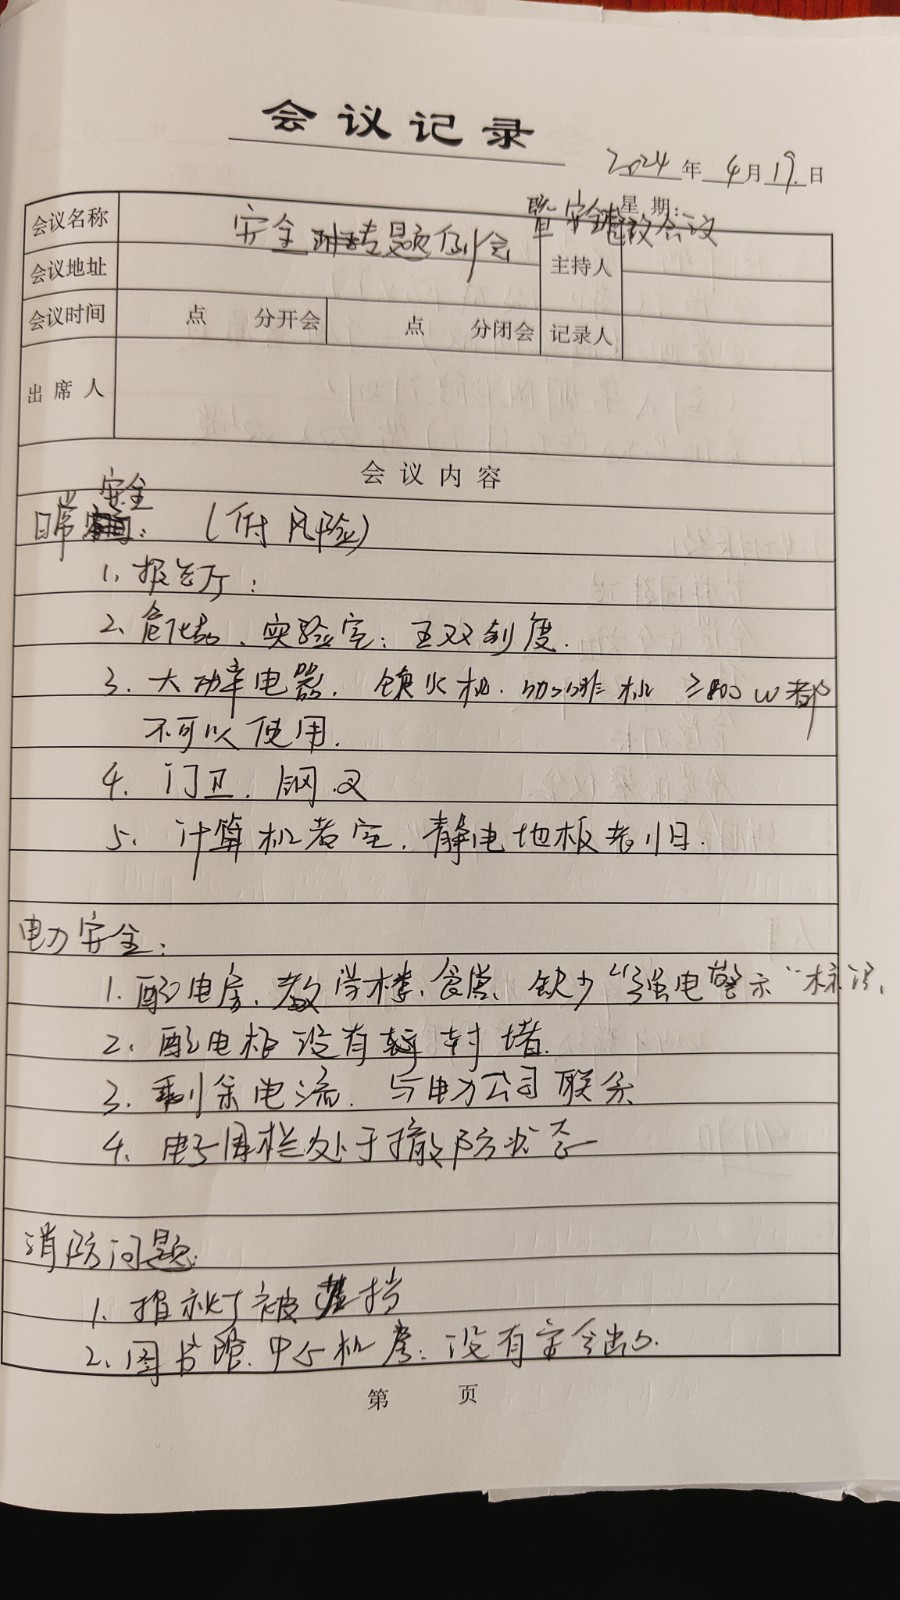 会议记录
2024年4月19日
星期:
会议名称 安全专题例会暨安全会议
会议地址 主持人
会议时间 点 分开会 点 分闭会 记录人
出席人
会议内容
安全
日常: (付风险)
1、报告厅:
2、危化品、实验室:五双制度.
3、大功率电器. 机. 咖啡机 ≥800W都
不可以使用.
4. 门卫. 钢叉
5、计算机教室. 静电地板老旧.
电力安全:
1. 配电房、教学楼、食堂、缺少“强电警示”标识.
2、配电柜没有封堵.
3. 剩余电流. 与电力公司联系
4. 电子围栏处于撤防状态
消防问题:
1. 指示灯被遮挡
2、图书馆、中心机房:没有安全出口.
第 页